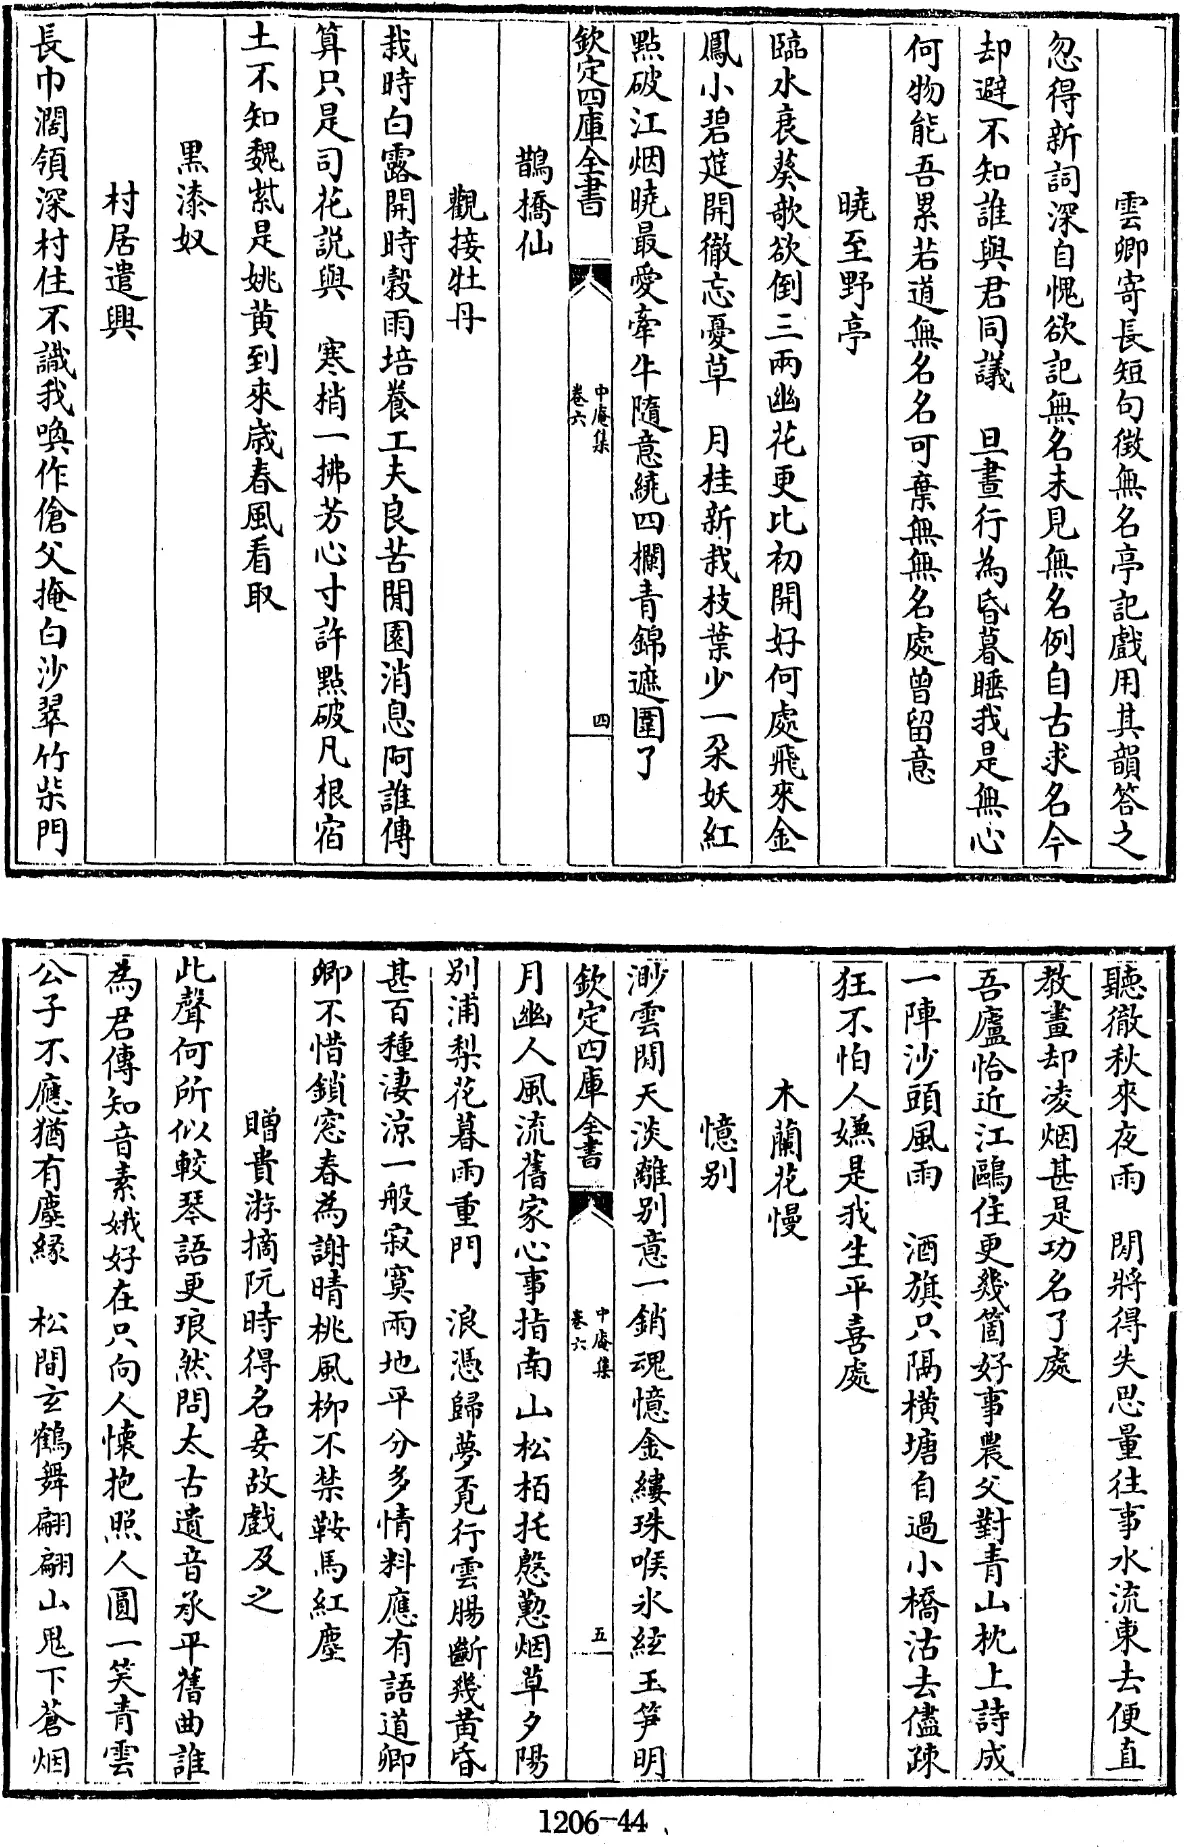 雲卿寄長短句徵無名亭記戲用其韻答之
忽得新詞深自愧欲記無名未見無名例自古求名今
却避不知誰與君同議　旦晝行為昏暮睡我是無心
何物能吾累若道無名名可棄無無名處曾留意
曉至野亭
臨水衰葵欹欲倒三兩幽花更比初開好何處飛來金
鳳小碧莚開徹忘憂草　月桂新栽枝葉少一朶妖紅
點破江烟曉最愛牽牛隨意繞四欄青錦遮圍了
欽定四庫全書
中庵集
卷六
四
鵲橋仙
觀接牡丹
栽時白露開時穀雨培養工夫良苦閒園消息阿誰傳
算只是司花説與　寒梢一拂芳心寸許點破凡根宿
土不知魏紫是姚黄到來歳春風看取
黒漆奴
村居遣興
長巾濶領深村住不識我喚作傖父掩白沙翠竹柴門
聽徹秋來夜雨　閒將得失思量往事水流東去便直
教畫却凌烟甚是功名了處
吾廬恰近江鷗住更幾箇好事農父對青山枕上詩成
一陣沙頭風雨　酒旗只隔横塘自過小橋沽去儘疎
狂不怕人嫌是我生平喜處
木蘭花慢
憶别
渺雲閒天淡離别意一銷魂憶金縷珠喉氷絃玉笋明
欽定四庫全書
中庵集
卷六
五
月幽人風流舊家心事指南山松栢托慇懃烟草夕陽
别浦梨花暮雨重門　浪憑歸夢覔行雲腸斷幾黄昏
甚百種淒涼一般寂寞兩地平分多情料應有語道卿
卿不惜鎖窓春為謝晴桃風栁不禁鞍馬紅塵
贈貴游摘阮時得名妾故戲及之
此聲何所似較琴語更琅然問太古遺音承平舊曲誰
為君傳知音素娥好在只向人懷抱照人圓一笑青雲
公子不應猶有塵縁　松間玄鶴舞翩翩山鬼下蒼烟
1206-44